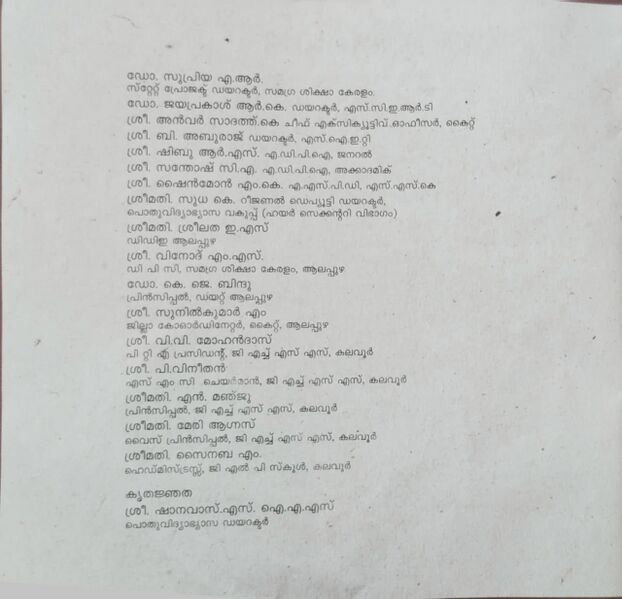 ഡോ. സുപ്രിയ എ.ആർ.
സ്റ്റേറ്റ് പ്രോജക്ട് ഡയറക്ടർ, സമഗ്ര ശിക്ഷാ കേരളം.
ഡോ. ജയപ്രകാശ് ആർ.കെ. ഡയറക്ടർ, എസ്.സി.ഇ.ആർ.ടി
ശ്രീ. അൻവർ സാദത്ത്.കെ ചീഫ് എക്സിക്യൂട്ടിവ്.ഓഫീസർ, കൈറ്റ്
ശ്രീ. ബി. അബുരാജ് ഡയറക്ടർ, എസ്.ഐ.ഇ.റ്റി
ശ്രീ. ഷിബു ആർ.എസ്. എ.ഡി.പി.ഐ, ജനറൽ
ശ്രീ. സന്തോഷ് സി.എ. എ.ഡി.പി.ഐ, അക്കാദമിക്
ശ്രീ. ഷൈൻമോൻ എം.കെ. എ.എസ്.പി.ഡി, എസ്.എസ്.കെ
ശ്രീമതി. സുധ കെ. റീജണൽ ഡെപ്യൂട്ടി ഡയറക്ടർ,
പൊതുവിദ്യാഭ്യാസ വകുപ്പ് (ഹയർ സെക്കന്ററി വിഭാഗം)
ശ്രീമതി. ശ്രീലത ഇ.എസ്
ഡിഡിഇ ആലപ്പുഴ
ശ്രീ. വിനോദ് എം.എസ്.
ഡി പി സി, സമഗ്ര ശിക്ഷാ കേരളം, ആലപ്പുഴ
ഡോ. കെ. ജെ. ബിന്ദു
പ്രിൻസിപ്പൽ, ഡയറ്റ് ആലപ്പുഴ
ശ്രീ. സുനിൽകുമാർ എം
ജില്ലാ കോഓർഡിനേറ്റർ, കൈറ്റ്, ആലപ്പുഴ
ശ്രീ. വി.വി. മോഹൻദാസ്
പി റ്റി എ പ്രസിഡന്റ്, ജി എച്ച് എസ് എസ്, കലവൂർ
ശ്രീ. പി.വിനീതൻ
എസ് എം സി ചെയർമാൻ, ജി എച്ച് എസ് എസ്, കലവൂർ
ശ്രീമതി. എൻ. മഞ്ജു
പ്രിൻസിപ്പൽ, ജി എച്ച് എസ് എസ്, കലവൂർ
ശ്രീമതി. മേരി ആഗ്നസ്
വൈസ് പ്രിൻസിപ്പൽ, ജി എച്ച് എസ് എസ്, കലവൂർ
ശ്രീമതി. സൈനബ എം.
ഹെഡ്മിസ്ട്രസ്സ്, ജി എൽ പി സ്കൂൾ, കലവൂർ
കൃതജ്ഞത
ശ്രീ. ഷാനവാസ്.എസ്. ഐ.എ.എസ്
പൊതുവിദ്യാഭ്യാസ ഡയറക്ടർ